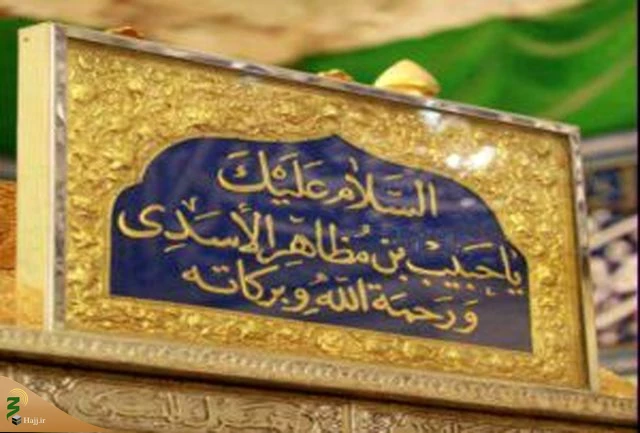 السَّلَامُ عَلَيْكَ
يَا حَبِيْبَ بْنَ مُظَاهِرِ الْأَسَدِى
وَرَحْمَةُ اللهِ وَبَرَكَاتُه
Hajj.ir